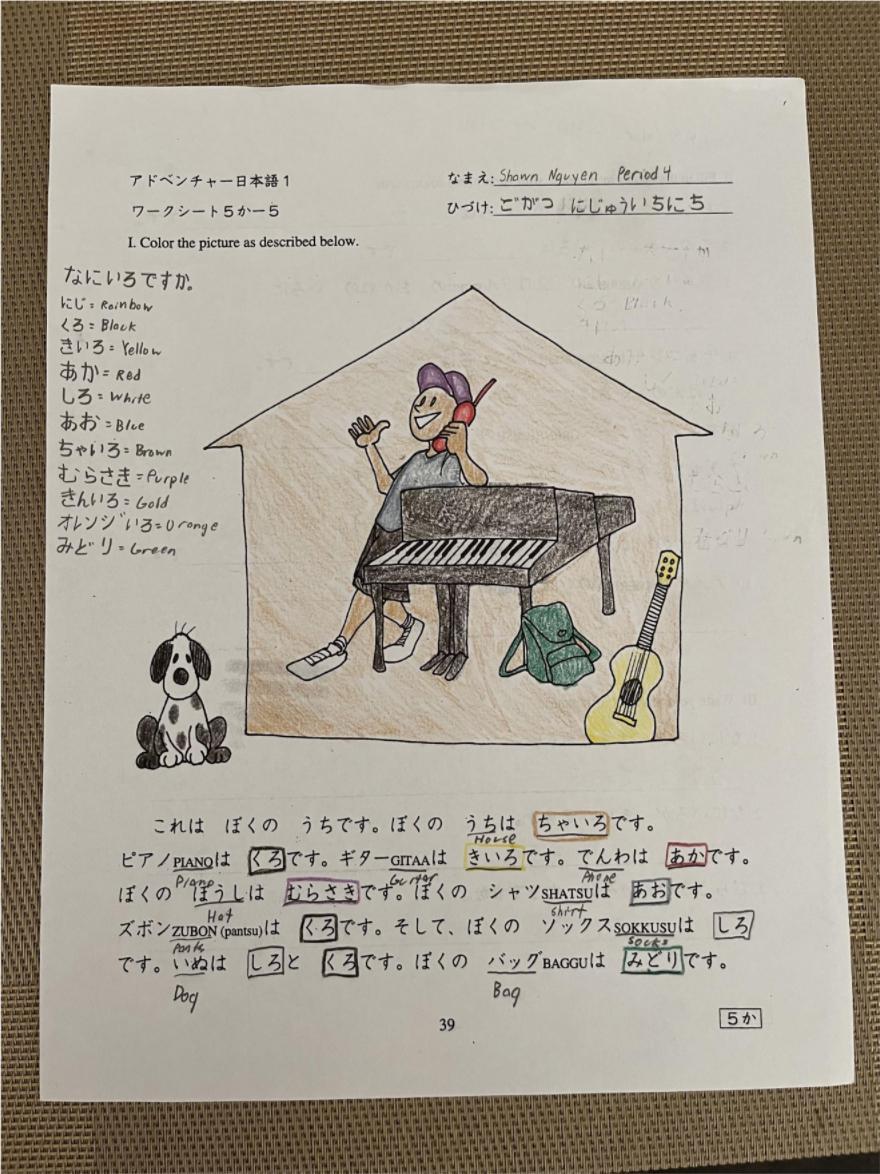 アドベンチャー日本語1
なまえ: Shawn Nguyen Period 4
ワークシート5かー5
ひづけ: ごがつ にじゅういちにち
I. Color the picture as described below.
なにいろですか。
にじ = Rainbow
くろ = Black
きいろ = Yellow
あか = Red
しろ = White
あお = Blue
ちゃいろ = Brown
むらさき = Purple
きんいろ = Gold
オレンジいろ = Orange
みどり = Green
これは ぼくの うちです。ぼくの うちは ちゃいろです。
House
ピアノPIANOは くろです。ギターGITAAは きいろです。でんわは あかです。
Piano Guitar Phone
ぼくの ぼうしは むらさきです。ぼくの シャツSHATSUは あおです。
Hat Shirt
ズボンZUBON (pantsu)は くろです。そして、ぼくの ソックスSOKKUSUは しろ
Pants Socks
です。いぬは しろと くろです。ぼくの バッグBAGGUは みどりです。
Dog Bag
39
5か